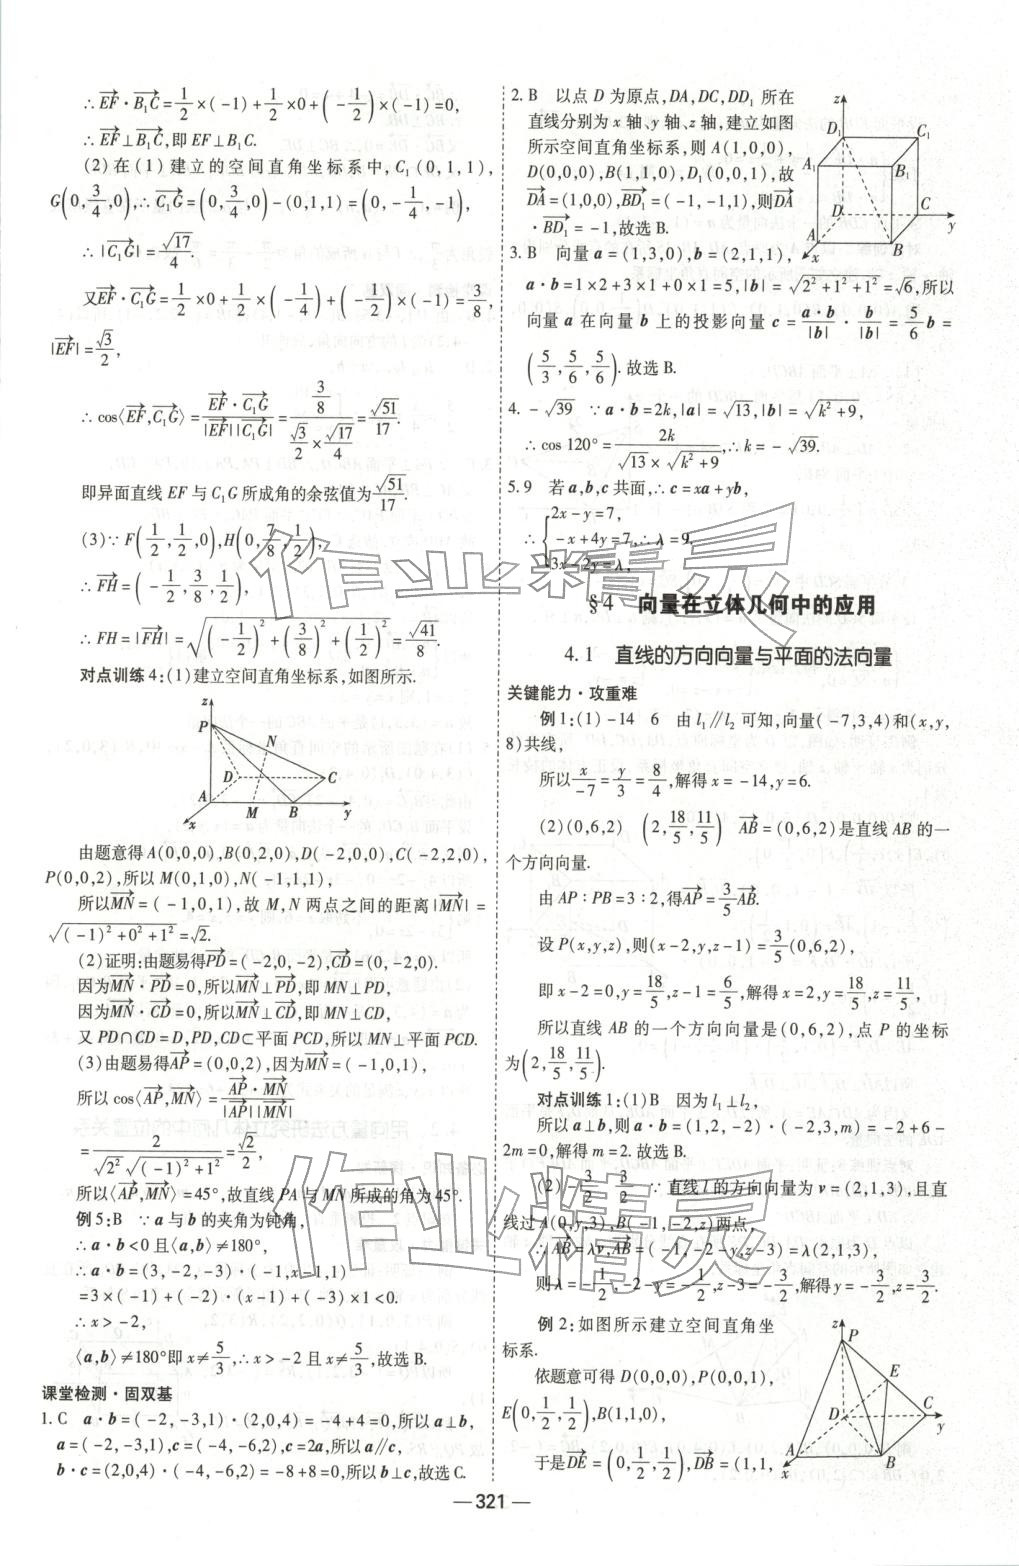 ∴$\overrightarrow{EF}\cdot\overrightarrow{B_1C}=\frac{1}{2}×(-1)+\frac{1}{2}×0+\left(-\frac{1}{2}\right)×(-1)=0$,
∴$\overrightarrow{EF}⊥\overrightarrow{B_1C}$,即EF⊥B₁C.
(2)在(1)建立的空间直角坐标系中,C₁(0,1,1),
$G\left(0,\frac{3}{4},0\right)$,∴$\overrightarrow{C_1G}=\left(0,\frac{3}{4},0\right)-(0,1,1)=\left(0,-\frac{1}{4},-1\right)$,
∴$|\overrightarrow{C_1G}|=\frac{\sqrt{17}}{4}$.
又$\overrightarrow{EF}\cdot\overrightarrow{C_1G}=\frac{1}{2}×0+\frac{1}{2}×\left(-\frac{1}{4}\right)+\left(-\frac{1}{2}\right)×(-1)=\frac{3}{8}$,
$|\overrightarrow{EF}|=\frac{\sqrt{3}}{2}$,
∴$\cos\langle\overrightarrow{EF},\overrightarrow{C_1G}\rangle=\frac{\overrightarrow{EF}\cdot\overrightarrow{C_1G}}{|\overrightarrow{EF}||\overrightarrow{C_1G}|}=\frac{\frac{3}{8}}{\frac{\sqrt{3}}{2}×\frac{\sqrt{17}}{4}}=\frac{\sqrt{51}}{17}$.
即异面直线EF与C₁G所成角的余弦值为$\frac{\sqrt{51}}{17}$.
(3)∵$F\left(\frac{1}{2},\frac{1}{2},0\right)$,$H\left(0,\frac{7}{8},\frac{1}{2}\right)$,
∴$\overrightarrow{FH}=\left(-\frac{1}{2},\frac{3}{8},\frac{1}{2}\right)$,
∴$FH=|\overrightarrow{FH}|=\sqrt{\left(-\frac{1}{2}\right)^2+\left(\frac{3}{8}\right)^2+\left(\frac{1}{2}\right)^2}=\frac{\sqrt{41}}{8}$.
对点训练4:(1)建立空间直角坐标系,如图所示.
z
P
N
D
C
A
M B y
x
由题意得A(0,0,0),B(0,2,0),D(-2,0,0),C(-2,2,0),
P(0,0,2),所以M(0,1,0),N(-1,1,1),
所以$\overrightarrow{MN}=(-1,0,1)$,故M,N两点之间的距离$|\overrightarrow{MN}|=$
$\sqrt{(-1)^2+0^2+1^2}=\sqrt{2}$.
(2)证明:由题易得$\overrightarrow{PD}=(-2,0,-2)$,$\overrightarrow{CD}=(0,-2,0)$.
因为$\overrightarrow{MN}\cdot\overrightarrow{PD}=0$,所以$\overrightarrow{MN}⊥\overrightarrow{PD}$,即MN⊥PD,
因为$\overrightarrow{MN}\cdot\overrightarrow{CD}=0$,所以$\overrightarrow{MN}⊥\overrightarrow{CD}$,即MN⊥CD,
又PD∩CD=D,PD,CD⊂平面PCD,所以MN⊥平面PCD.
(3)由题易得$\overrightarrow{AP}=(0,0,2)$,因为$\overrightarrow{MN}=(-1,0,1)$,
所以$\cos\langle\overrightarrow{AP},\overrightarrow{MN}\rangle=\frac{\overrightarrow{AP}\cdot\overrightarrow{MN}}{|\overrightarrow{AP}||\overrightarrow{MN}|}$
$=\frac{2}{\sqrt{2^2}\sqrt{(-1)^2+1^2}}=\frac{\sqrt{2}}{2}$,
所以$\langle\overrightarrow{AP},\overrightarrow{MN}\rangle=45°$,故直线PA与MN所成的角为45°.
例5:B ∵a与b的夹角为钝角,
∴a·b<0且⟨a,b⟩≠180°,
∴a·b=(3,-2,-3)·(-1,x-1,1)
=3×(-1)+(-2)·(x-1)+(-3)×1<0.
∴x>-2,
⟨a,b⟩≠180°即$x≠\frac{5}{3}$,∴x>-2且$x≠\frac{5}{3}$,故选B.
课堂检测·固双基
1.C a·b=(-2,-3,1)·(2,0,4)=-4+4=0,所以a⊥b,
a=(-2,-3,1),c=(-4,-6,2),c=2a,所以a∥c,
b·c=(2,0,4)·(-4,-6,2)=-8+8=0,所以b⊥c,故选C.
2.B 以点D为原点,DA,DC,DD₁所在
直线分别为x轴、y轴、z轴,建立如图
所示空间直角坐标系,则A(1,0,0),
D(0,0,0),B(1,1,0),D₁(0,0,1),故
$\overrightarrow{DA}=(1,0,0)$,$\overrightarrow{BD_1}=(-1,-1,1)$,则$\overrightarrow{DA}$
$\cdot\overrightarrow{BD_1}=-1$,故选B.
z
D₁ C₁
A₁ B₁
D C
y
A B
x
3.B 向量a=(1,3,0),b=(2,1,1),
a·b=1×2+3×1+0×1=5,$|b|=\sqrt{2^2+1^2+1^2}=\sqrt{6}$,所以
向量a在向量b上的投影向量$c=\frac{a\cdot b}{|b|}\cdot\frac{b}{|b|}=\frac{5}{6}b=$
$\left(\frac{5}{3},\frac{5}{6},\frac{5}{6}\right)$.故选B.
4.$-\sqrt{39}$ ∵a·b=2k,$|a|=\sqrt{13}$,$|b|=\sqrt{k^2+9}$,
∴$\cos 120°=\frac{2k}{\sqrt{13}×\sqrt{k^2+9}}$,∴$k=-\sqrt{39}$.
5.9 若a,b,c共面,∴c=xa+yb,
∴$\begin{cases}2x-y=7,\\-x+4y=7,\\3x-2y=λ,\end{cases}$∴λ=9.
§4 向量在立体几何中的应用
4.1 直线的方向向量与平面的法向量
关键能力·攻重难
例1:(1)-14 6 由l₁∥l₂可知,向量(-7,3,4)和(x,y,
8)共线,
所以$\frac{x}{-7}=\frac{y}{3}=\frac{8}{4}$,解得x=-14,y=6.
(2)(0,6,2) $\left(2,\frac{18}{5},\frac{11}{5}\right)$ $\overrightarrow{AB}=(0,6,2)$是直线AB的一
个方向向量.
由AP∶PB=3∶2,得$\overrightarrow{AP}=\frac{3}{5}\overrightarrow{AB}$.
设P(x,y,z),则$(x-2,y,z-1)=\frac{3}{5}(0,6,2)$,
即x-2=0,$y=\frac{18}{5}$,$z-1=\frac{6}{5}$,解得x=2,$y=\frac{18}{5}$,$z=\frac{11}{5}$,
所以直线AB的一个方向向量是(0,6,2),点P的坐标
为$\left(2,\frac{18}{5},\frac{11}{5}\right)$.
对点训练1:(1)B 因为l₁⊥l₂,
所以a⊥b,则a·b=(1,2,-2)·(-2,3,m)=-2+6-
2m=0,解得m=2.故选B.
(2)$-\frac{3}{2}$ $\frac{3}{2}$ ∵直线l的方向向量为v=(2,1,3),且直
线过A(0,y,3),B(-1,-2,z)两点,
∴$\overrightarrow{AB}=λv$,$\overrightarrow{AB}=(-1,-2-y,z-3)=λ(2,1,3)$,
则$λ=-\frac{1}{2}$,$-2-y=-\frac{1}{2}$,$z-3=-\frac{3}{2}$,解得$y=-\frac{3}{2}$,$z=\frac{3}{2}$.
例2:如图所示建立空间直角坐
标系.
依题意可得D(0,0,0),P(0,0,1),
$E\left(0,\frac{1}{2},\frac{1}{2}\right)$,B(1,1,0),
于是$\overrightarrow{DE}=\left(0,\frac{1}{2},\frac{1}{2}\right)$,$\overrightarrow{DB}=(1,1,$
z
P
E
D C
y
A
x B
— 321 —
作业精灵
作业精灵